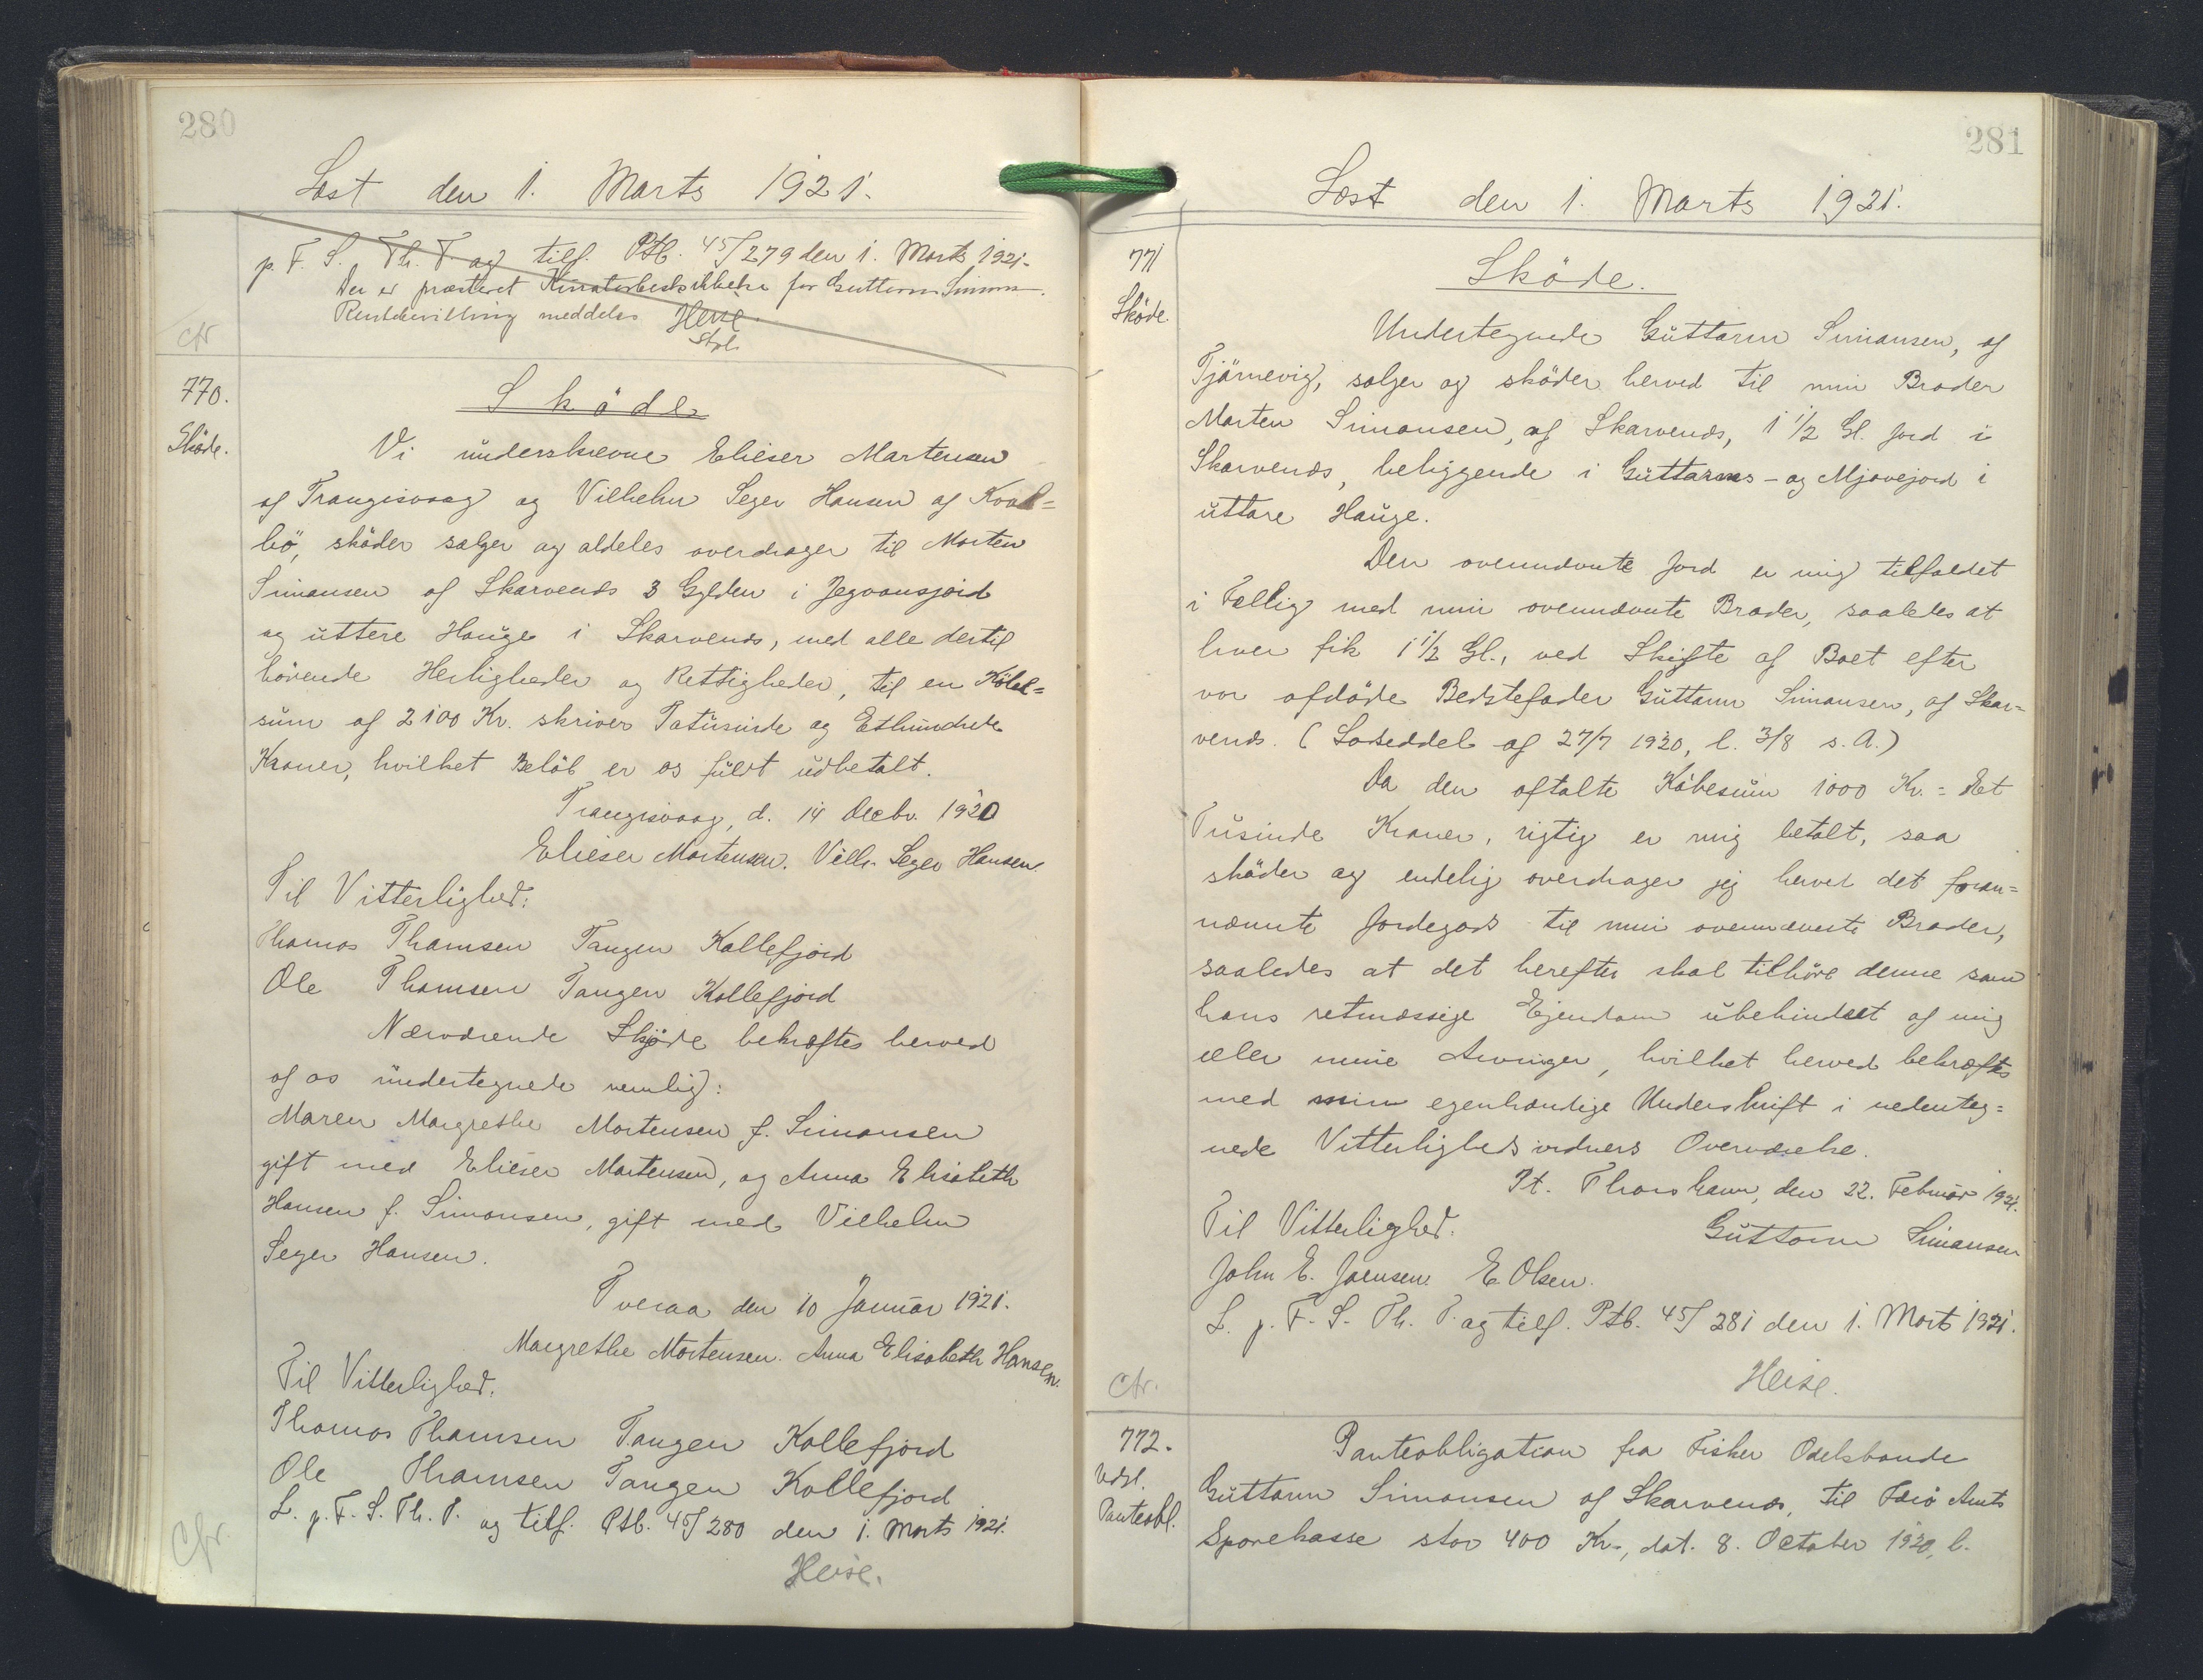 280
Læst den 1. Marts 1921.
p. F. S. Th. T. og tilf. Ptb. 45/279 den 1. Marts 1921.
Der er præsteret Kuratorbeskikkelse for Guttorm Simons.
meddeles Heise
Cfr
770.
Sköde.
Sköde
Vi underskrevne Elieser Mortensen
af Trangisvaag og Vilhelm Seger Hansen af Kval=
bö, sköder sælger og aldeles overdrager til Morten
Simonsen af Skarvenæs 3 Gylden i Jegvansjord
og uttere Hauge i Skarvenæs, med alle dertil
hörende Herligheder og Rettigheder, til en Köbe=
sum af 2100 Kr. skriver Totusinde og Ethundrede
Kroner, hvilket Belöb er os fuldt udbetalt.
Trangisvaag, d. 14 Decbr. 1920
Elieser Mortensen. Vilh. Seger Hansen.
Til Vitterlighed:
Thomas Thomsen Tangen Kollefjord
Ole Thomsen Tangen Kollefjord
Nærværende Skjöde bekræftes herved
af os undertegnede nemlig:
Maren Margrethe Mortensen f. Simonsen
gift med Elieser Mortensen, og Anna Elisabeth
Hansen f. Simonsen, gift med Vilhelm
Seger Hansen.
Tveraa den 10 Januar 1921.
Margrethe Mortensen. Anna Elisabeth Hansen.
Til Vitterlighed:
Thomas Thomsen Tangen Kollefjord
Ole Thomsen Tangen Kollefjord
L. p. F. S. Th. T. og tilf. Ptb. 45/280 den 1. Marts 1921.
Heise.
Cfr.
281
Læst den 1. Marts 1921.
771
Sköde.
Sköde.
Undertegnede Guttorm Simonsen, af
Tjörnevig, sælger og sköder herved til min Broder
Morten Simonsen, af Skarvenæs, 1 1/2 Gl. Jord i
Skarvenæs, beliggende i Guttorms- og Mjovejord i
uttare Hauge.
Den ovennævnte Jord er mig tilfaldet
i Fællig med min ovennævnte Broder, saaledes at
hver fik 1 1/2 Gl., ved Skifte af Boet efter
vor afdöde Bedstefader Guttorm Simonsen, af Skar=
venæs. (Lodseddel af 27/7 1920, l. 3/8 s. A.)
Da den aftalte Köbesum 1000 Kr. = Et
Tusinde Kroner, rigtig er mig betalt, saa
sköder og endelig overdrager jeg herved det foran=
nævnte Jordegods til min ovennævnte Broder,
saaledes at det herefter skal tilhöre denne som
hans retmæssige Ejendom ubehindret af mig
eller mine Arvinger, hvilket herved bekræftes
med min egenhændige Underskrift i nedenteg=
nede Vitterlighedsvidners Overværelse.
Pt. Thorshavn, den 22. Februar 1921.
Til Vitterlighed:
Guttorm Simonsen
John E. Joensen E. Olsen.
L. p. F. S. Th. T. og tilf. Ptb. 45/281 den 1. Marts 1921.
Heise.
Cfr.
772.
Udsl.
Panteobl.
Panteobligation fra Fisker Odelsbonde
Guttorm Simonsen af Skarvenæs, til Færö Amts
Sparekasse stor 400 Kr., dat. 8. October 1920, l.